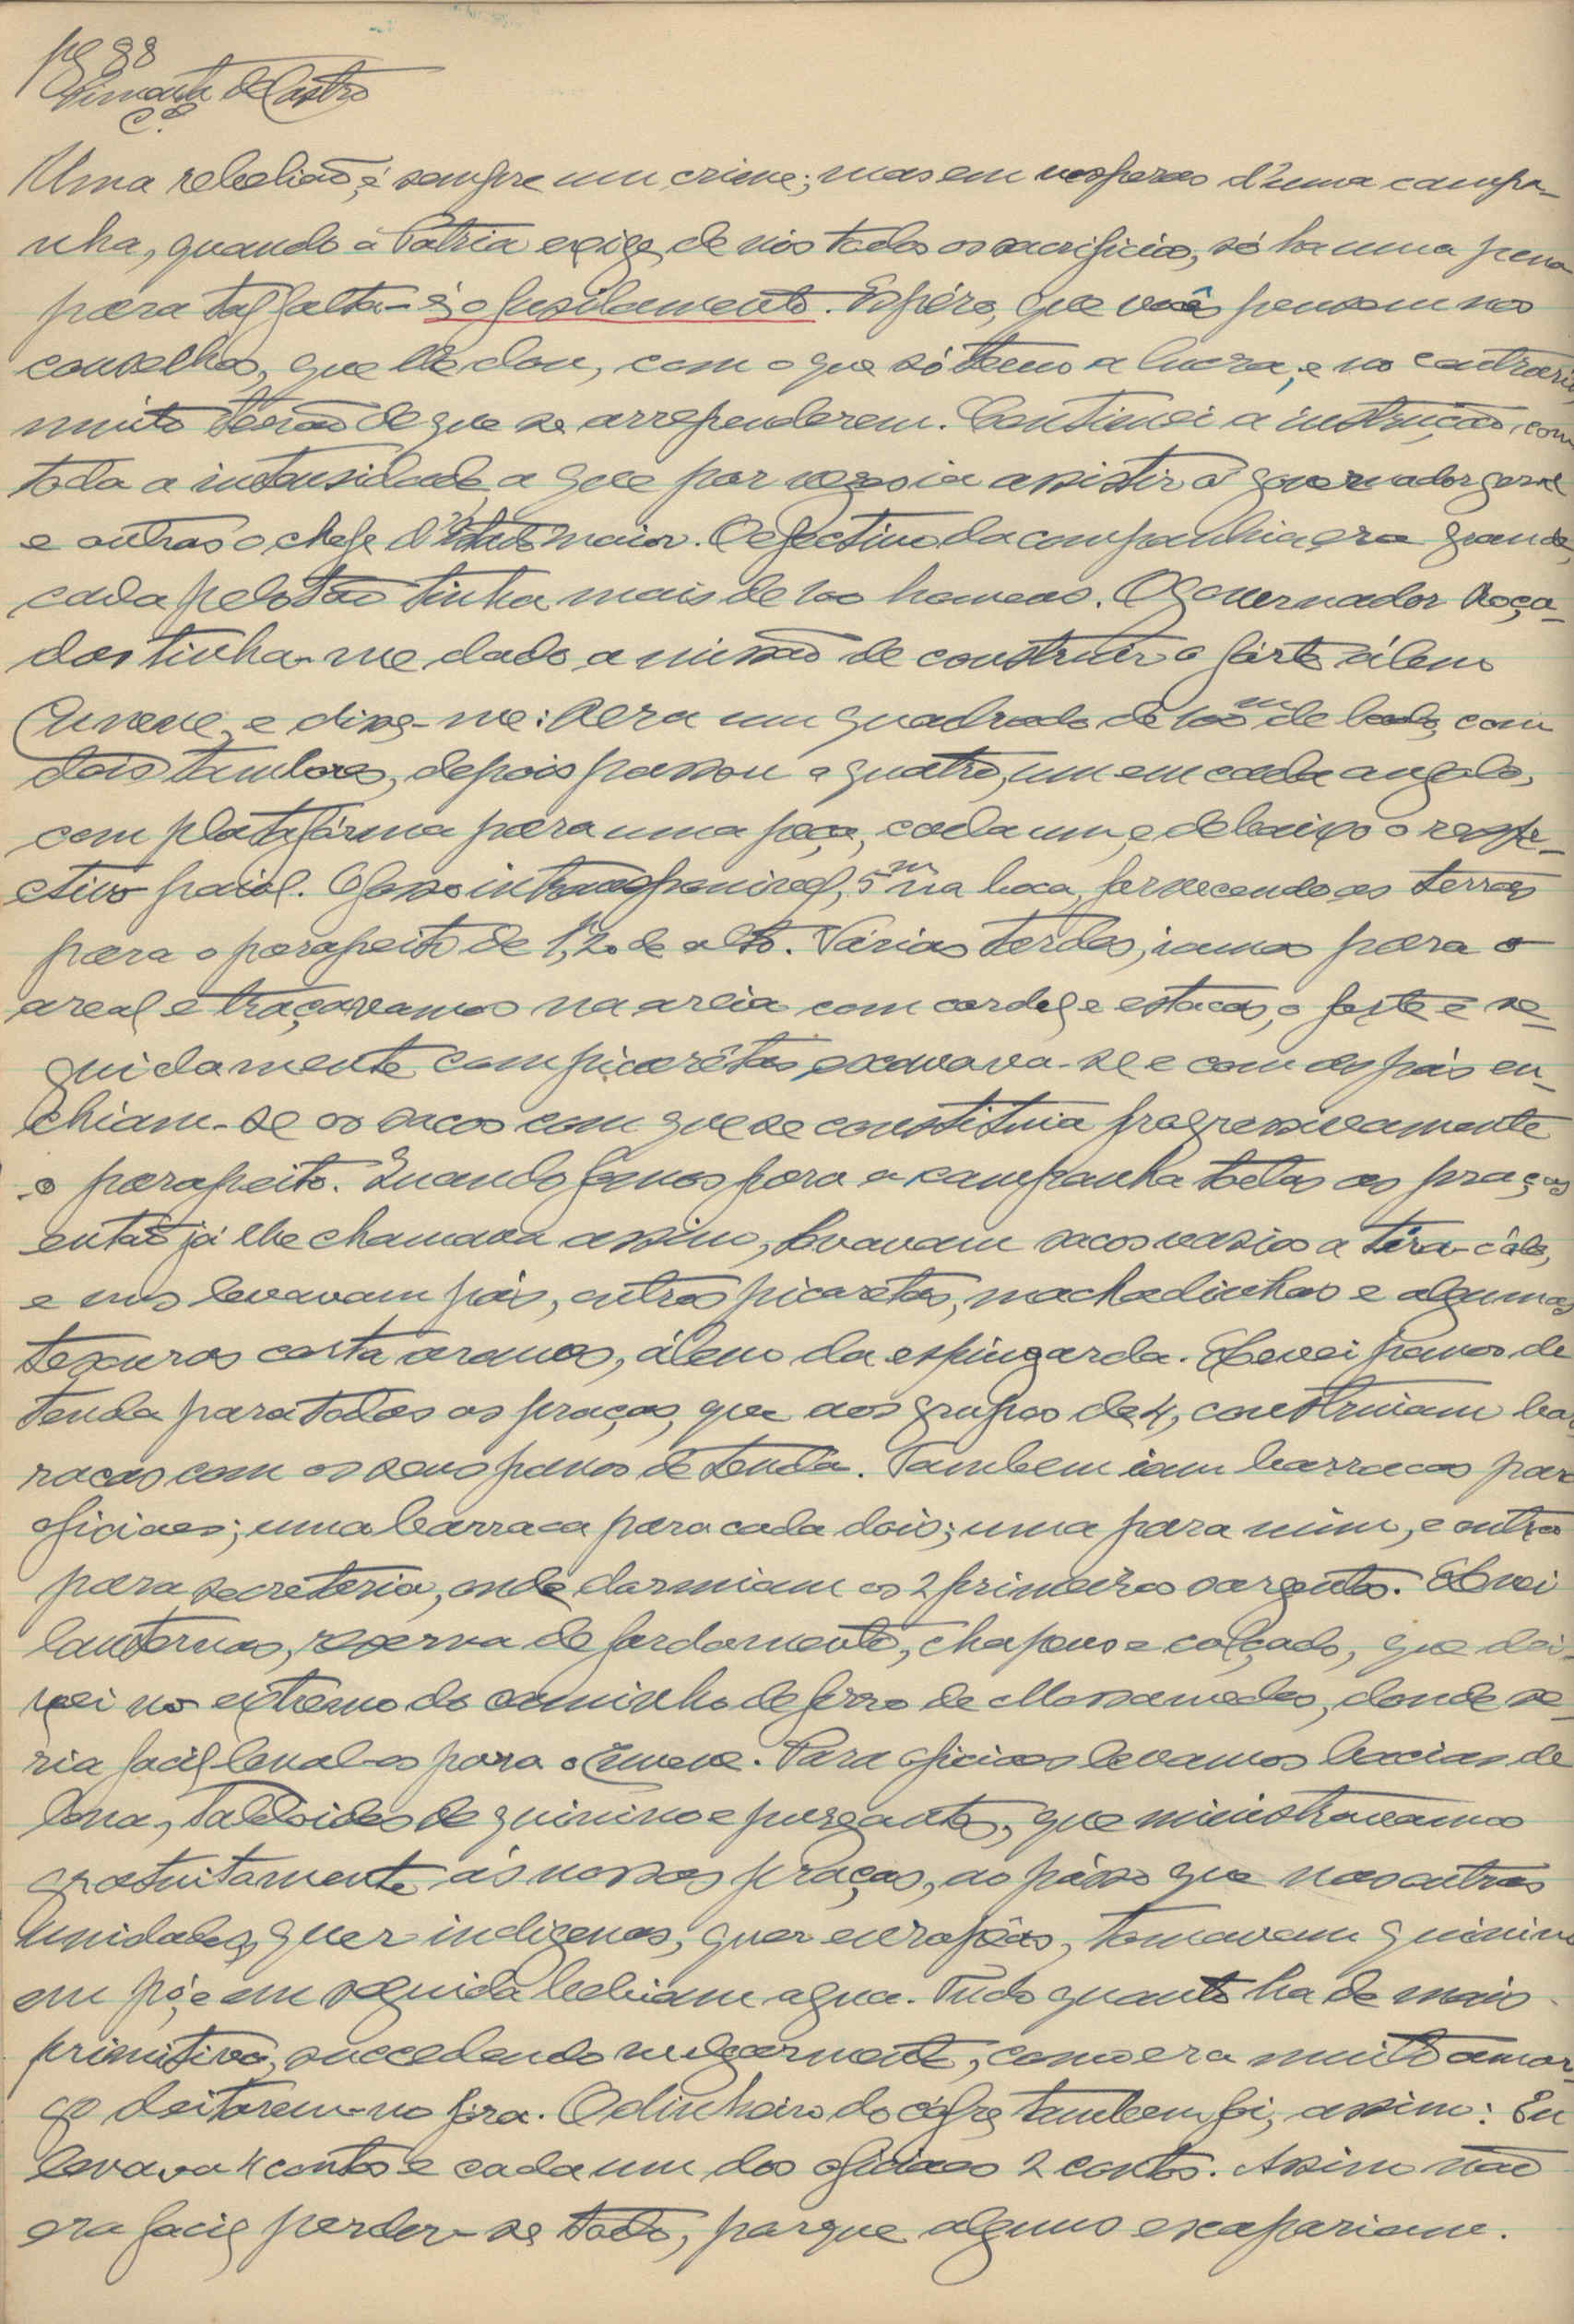 pg 88
Pimenta de Castro
C.el
Uma rebelião, é sempre um crime; mas em vesperas d'uma campa-
nha, quando a Patria exige de nós todos os sacrificios, só ha uma pena
para tal falta - é o fusilamento. Espéro, que vocês pensem nos
conselhos, que lhe dou, com o que só teem a lucrar, e no contrario,
muito terão de que se arrependerem. Continuei a instrução, com
toda a intensidade a que por vezes ia assistir o governador geral
e outras o chefe d'Estado maior. O efectivo da companhia era grande,
cada pelotão tinha mais de 100 homens. O governador Roça-
das tinha-me dado a missão de construir o fórte além
Cunene, e disse-me: Será um quadrado de 100m de lado, com
dois tambores, depois passou a quatro, um em cada angulo,
com platafórma para uma peça, cada um, e debaixo o respe-
ctivo paiol. O fosso intransponivel, 5m na boca, fornecendo as terras
para o parapeito de 1,m20 de alto. Várias tardes, iamos para o
areal e traçavamos na areia com cordel e estacas, o forte e se-
guidamente com picarêtas escavava-se e com as pás en-
chiam-se os sacos com que se constituia progressivamente
o parapeito. Quando fomos para a campanha todas as praças
então já lhe chamava assim, levavam sacos vasios a tira-cólo,
e uns levavam pás, outros picaretas, machadinhas e algumas
tesouras corta arames, álem da espingarda. Levei panos de
tenda para todas as praças, que aos grupos de 4, construiam bar-
racas com os seus panos de tenda. Tambem iam barracas para
oficiaes; uma barraca para cada dois; uma para mim, e outra
para secretaria, onde dormiam os 2 primeiros sargentos. Levei
lanternas, reserva de fardamento, chapeus e calçado, que dei-
xei no extremo do caminho de ferro de Mossamedes, donde se-
ria facil leval-os para o Cunene. Para oficiaes levamos bacias de
lona, tabloides de quinino e purgantes, que ministravamos
gratuitamente ás nossas praças, ao passo que nas outras
unidades, quer indigenas, quer européas, tomavam quinino
em pó, e em seguida bebiam agua. Tudo quanto ha de mais
primitivo, succedendo vulgarmente, como era muito amar-
go deitarem-no fóra. O dinheiro do cófre, tambem foi, assim: Eu
levava 4 contos e cada um dos oficiaes 2 contos. Assim não
era facil perder-se todo, porque alguns escapariam.